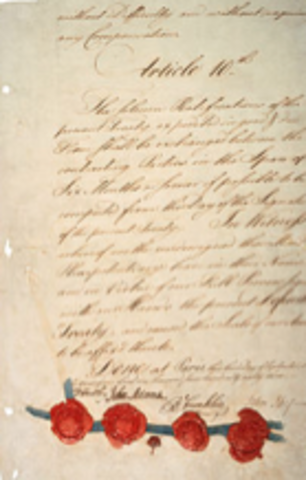 without Difficulty and without requiring
any Compensation.
Article 10th.
The solemn Ratifications of the
present Treaty expedited in good & due
Form shall be exchanged between the
contracting Parties in the Space of
Six Months or sooner if possible to be
computed from the Day of the Signature
of the present Treaty. In Witness
whereof we the undersigned their
Plenipotentiaries have in their Name
and in Virtue of our Full Powers
with our Hands the present
Treaty, and caused the Seals of our
to be affix'd thereto.
Done at Paris, this
John Adams
B Franklin
John Jay